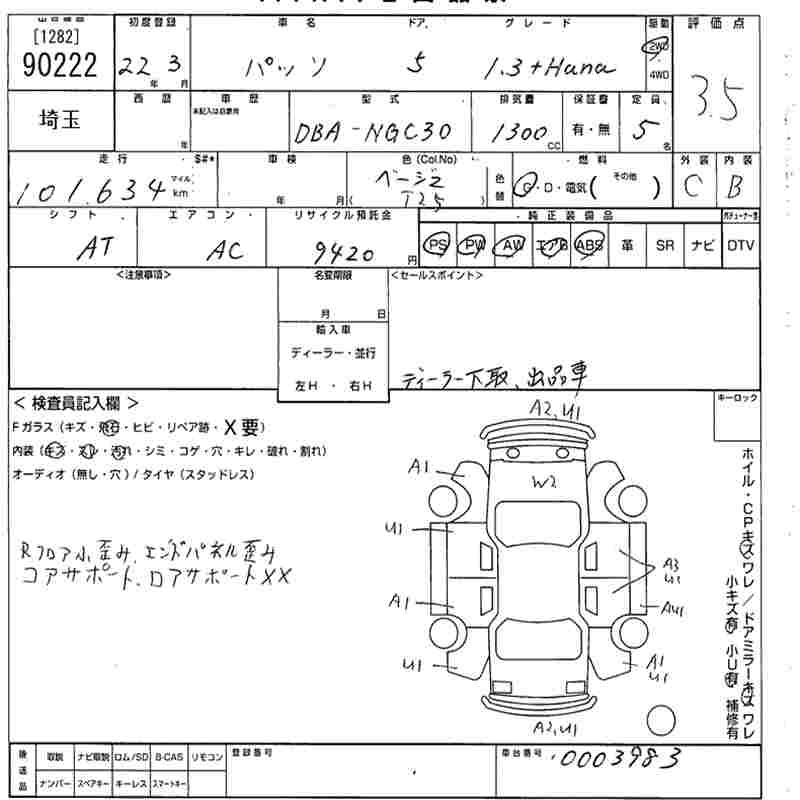 [1282]
90222
初度登録
22年 3月
車名
パッソ
ドア
5
グレード
1.3+Hana
駆動
2WD
4WD
評価点
3.5
埼玉
西暦
年
車歴
未記入は自家用
型式
DBA-NGC30
排気量
1300 CC
保証書
有・無
定員
5名
走行
101.634
マイル
km
S#*
車検
年 月
色(Col.No)
ベージュ
( T25 )
色替
燃料
G・D・電気( その他 )
外装
C
内装
B
シフト
AT
エアコン
AC
リサイクル預託金
9420円
純正装備品
PS PW AW エアB ABS 革 SR ナビ
DTV
<注意事項>
名変期限
月 日
輸入車
ディーラー・並行
左H・右H
<セールスポイント>
ディーラー下取、出品車
<検査員記入欄>
Fガラス (キズ・飛石・ヒビ・リペア跡・X要)
内装 (キズ・スレ・汚れ・シミ・コゲ・穴・キレ・破れ・割れ)
オーディオ (無し・穴) / タイヤ (スタッドレス)
キーロック
Rフロア小歪み、エンドパネル歪み
コアサポート、ロアサポートXX
A2,U1
A1
W2
U1
A3
U1
A1
AU1
U1
A1
U1
A2,U1
ホイル・CPキズワレ/ドアミラーキズワレ
小キズ有 小U有 補修有
後送品
取説 ナビ取説 ロム/SD B-CAS リモコン
ナンバー スペアキー キーレス スマートキー
登録番号
車台番号
0003983